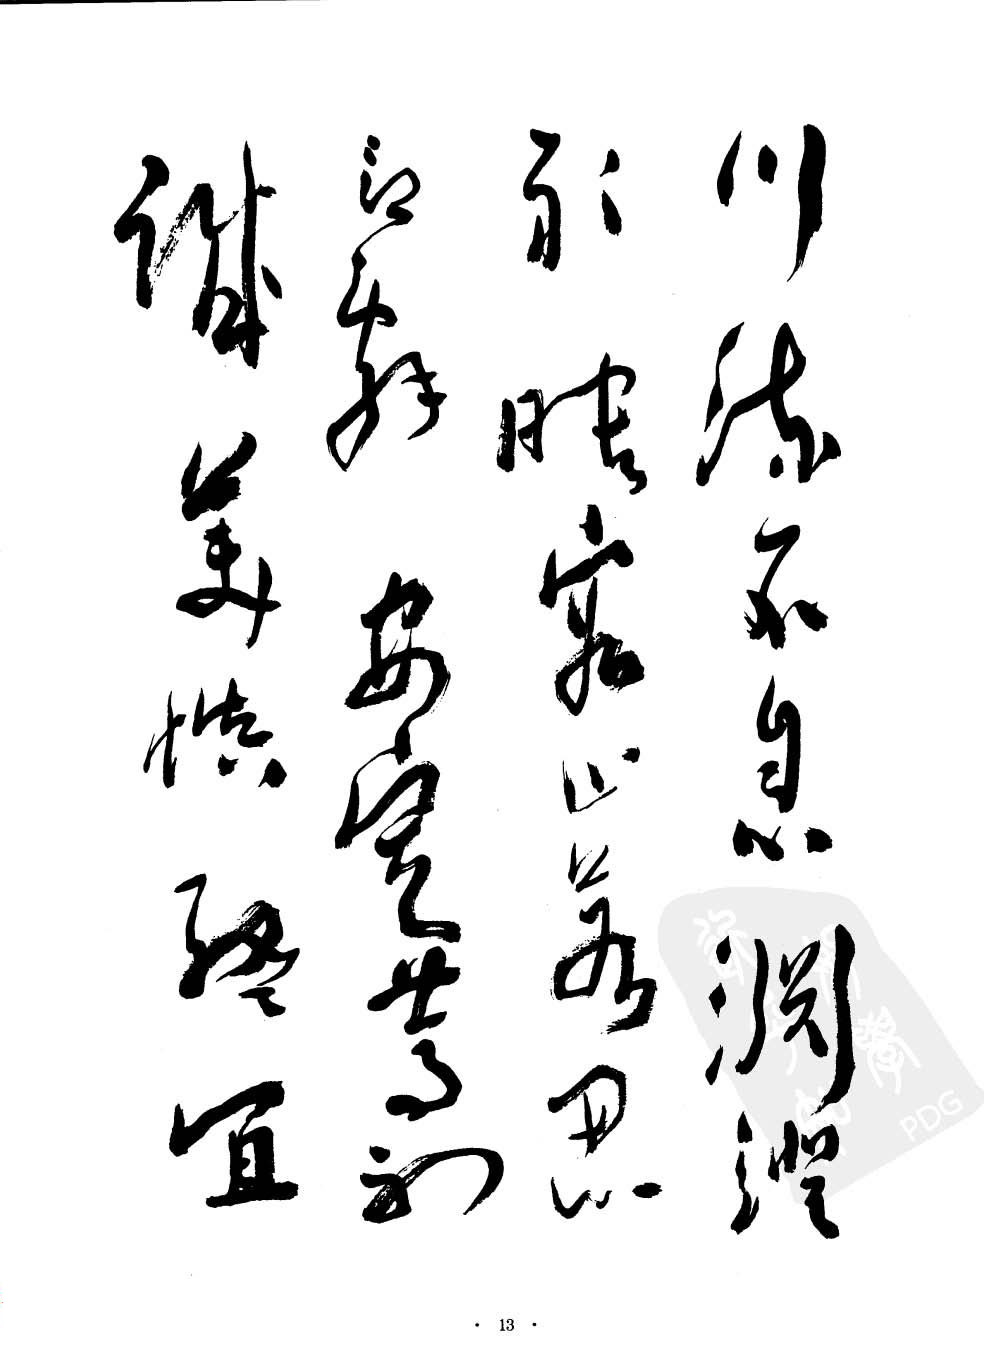 川流不息淵澄
取映容止若思
言辭安定篤初
誠美慎終宜
PDG
· 13 ·